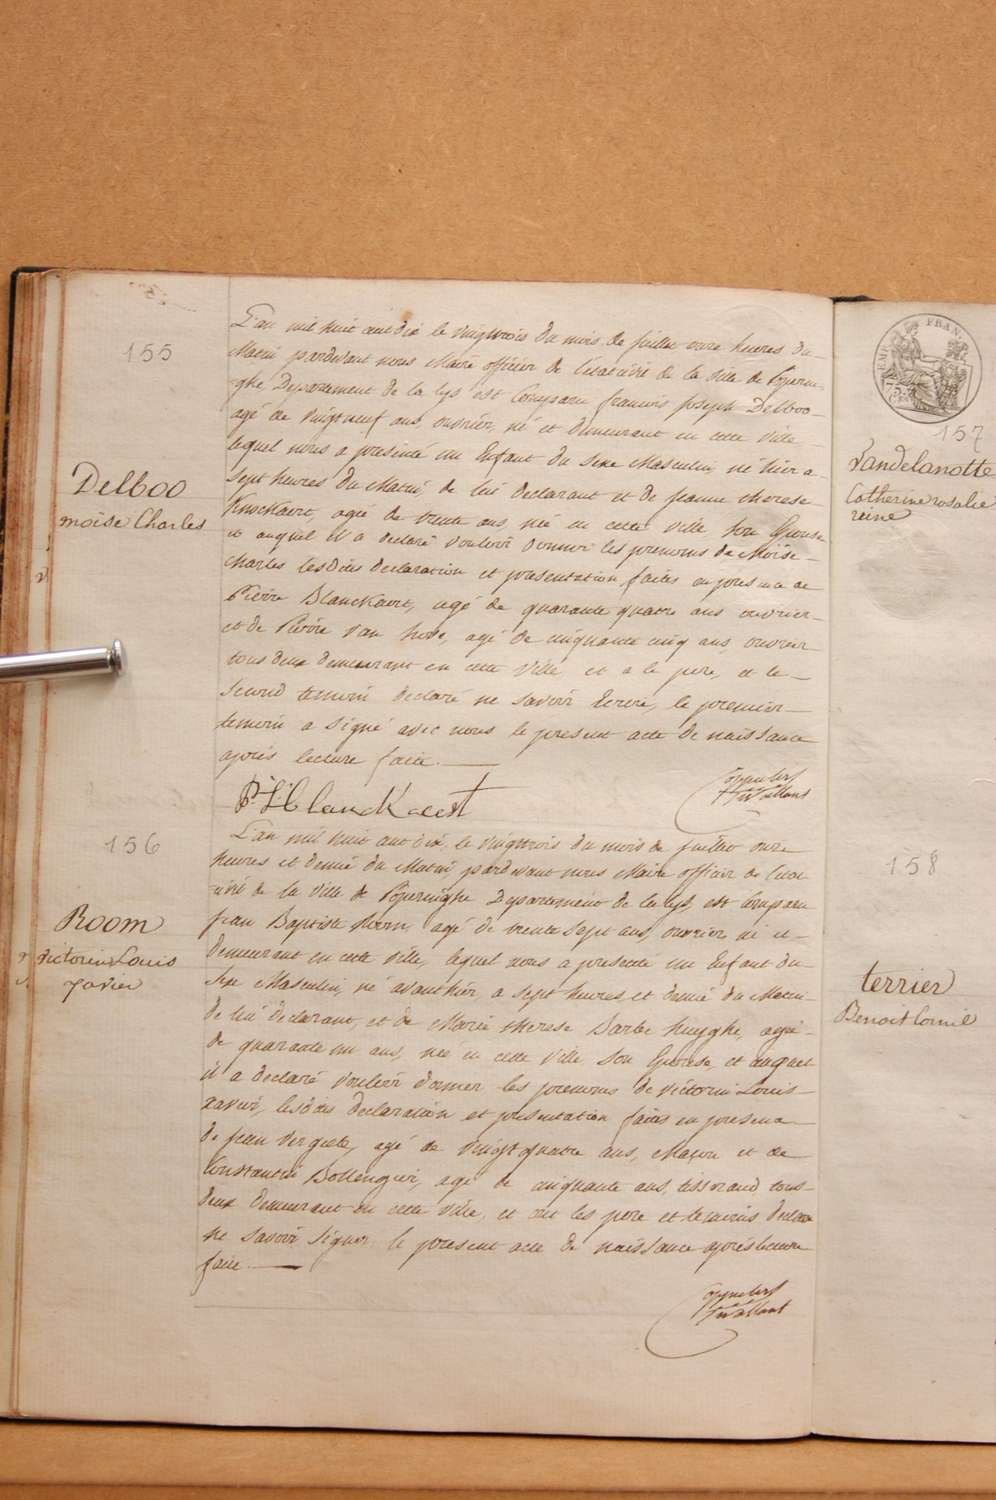 155
Delboo
moise Charles
L'an mil huit cent dix le vingttrois du mois de juillet onze heures du
Matin pardevant nous Maire officier de l'etat civil de la ville de Poperin-
ghe Departement de la Lys est Comparu francois Joseph Delboo
agé de vingt neuf ans, ouvrier, né et demeurant en cette ville
lequel nous a presenté un Enfant du sexe Masculin, né hier a
sept heures du Matin, de lui declarant et de jeanne therese
Knockaert, agée de trente ans, née en cette ville son Epouse
et auquel il a declaré vouloir donner les prenoms de Moïse
Charles lesdites declaration et presentation faites en presence de
Pierre Blanckaert, agé de quarante quatre ans ouvrier
et de Pierre van hove, agé de cinquante cinq ans, ouvrier
tous deux demeurant en cette ville et a le pere, et le
second temoin declaré ne savoir Ecrire, le premier
temoin a signé avec nous le present acte de naissance
après lecture faite.
P: J: Blanckaert
156
Room
victorin Louis
xavier
L'an mil huit cent dix, le vingttrois du mois de juillet onze
heures et demie du Matin, pardevant nous Maire officier de l'etat
civil de la ville de Poperinghe Departement de la Lys est comparu
jean Baptiste Room, agé de trente sept ans, ouvrier né et
demeurant en cette ville, lequel nous a presenté un Enfant du
sexe Masculin, né avanthier, a sept heures et demie du Matin
de lui declarant, et de Marie therese Barbe huyghe, agée
de quarante un ans, née en cette ville son Epouse, et auquel
il a declaré vouloir donner les prenoms de victorin Louis
xavier, lesdites declaration et presentation faites en presence
de jean vergiete, agé de vingt quatre ans, Maçon et de
Constantin Bollengier, agé de cinquante ans, tisserand tous
deux demeurant en cette ville, et ont les pere et temoins declaré
ne savoir signer le present acte de naissance après lecture
faite.
EMP FRAN
75
157
Vandelanotte
Catherine rosalie
reine
158
terrier
Benoit Cornil